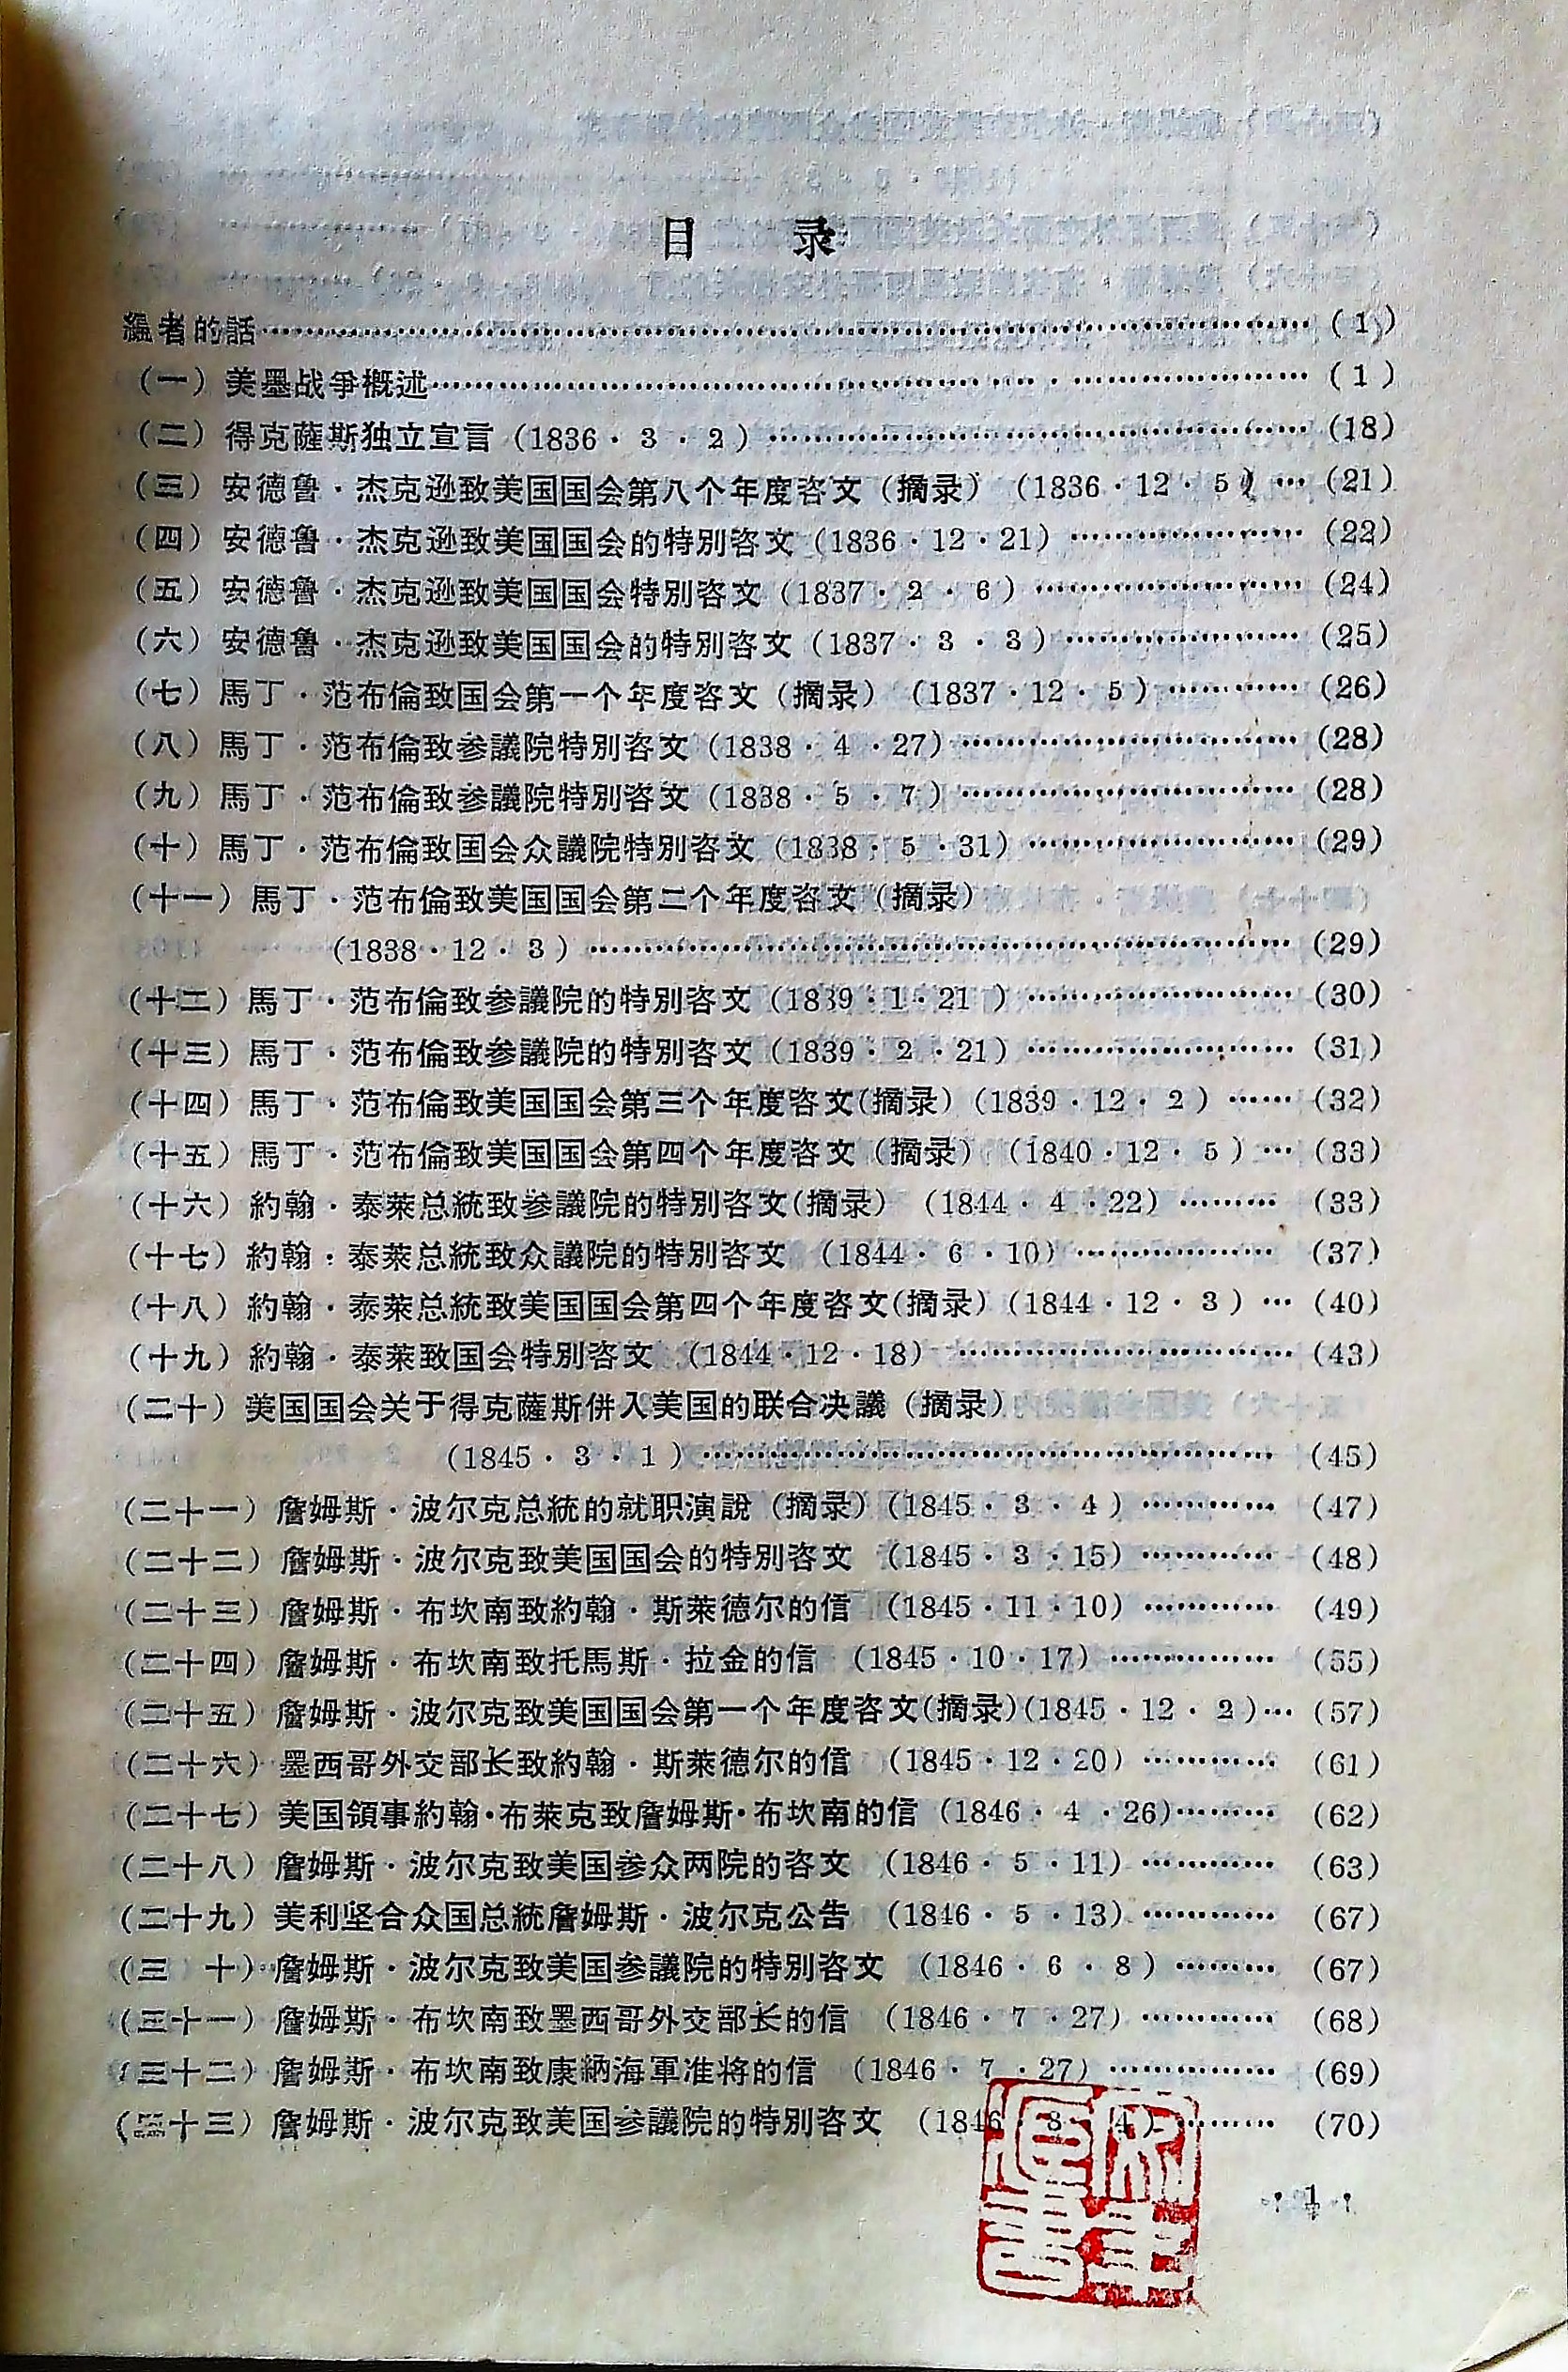 目 录
編者的話……………(1)
(一)美墨战爭概述……………(1)
(二)得克薩斯独立宣言(1836·3·2)……………(18)
(三)安德魯·杰克逊致美国国会第八个年度咨文(摘录)(1836·12·5)…(21)
(四)安德魯·杰克逊致美国国会的特別咨文(1836·12·21)……………(22)
(五)安德魯·杰克逊致美国国会特別咨文(1837·2·6)……………(24)
(六)安德魯·杰克逊致美国国会的特別咨文(1837·3·3)……………(25)
(七)馬丁·范布倫致国会第一个年度咨文(摘录)(1837·12·5)…………(26)
(八)馬丁·范布倫致参議院特別咨文(1838·4·27)……………(28)
(九)馬丁·范布倫致参議院特別咨文(1838·5·7)……………(28)
(十)馬丁·范布倫致国会众議院特別咨文(1838·5·31)……………(29)
(十一)馬丁·范布倫致美国国会第二个年度咨文(摘录)
(1838·12·3)……………(29)
(十二)馬丁·范布倫致参議院的特別咨文(1839·1·21)……………(30)
(十三)馬丁·范布倫致参議院的特別咨文(1839·2·21)……………(31)
(十四)馬丁·范布倫致美国国会第三个年度咨文(摘录)(1839·12·2)……(32)
(十五)馬丁·范布倫致美国国会第四个年度咨文(摘录)(1840·12·5)…(33)
(十六)約翰·泰萊总統致参議院的特別咨文(摘录)(1844·4·22)………(33)
(十七)約翰:泰萊总統致众議院的特別咨文(1844·6·10)……………(37)
(十八)約翰·泰萊总統致美国国会第四个年度咨文(摘录)(1844·12·3)…(40)
(十九)約翰·泰萊致国会特別咨文(1844·12·18)……………(43)
(二十)美国国会关于得克薩斯併入美国的联合决議(摘录)
(1845·3·1)……………(45)
(二十一)詹姆斯·波尔克总統的就职演說(摘录)(1845·3·4)…………(47)
(二十二)詹姆斯·波尔克致美国国会的特別咨文(1845·3·15)…………(48)
(二十三)詹姆斯·布坎南致約翰·斯莱德尔的信(1845·11·10)…………(49)
(二十四)詹姆斯·布坎南致托馬斯·拉金的信(1845·10·17)……………(55)
(二十五)詹姆斯·波尔克致美国国会第一个年度咨文(摘录)(1845·12·2)…(57)
(二十六)墨西哥外交部长致約翰·斯莱德尔的信(1845·12·20)…………(61)
(二十七)美国領事約翰·布莱克致詹姆斯·布坎南的信(1846·4·26)………(62)
(二十八)詹姆斯·波尔克致美国参众两院的咨文(1846·5·11)…………(63)
(二十九)美利坚合众国总統詹姆斯·波尔克公告(1846·5·13)…………(67)
(三 十)詹姆斯·波尔克致美国参議院的特別咨文(1846·6·8)………(67)
(三十一)詹姆斯·布坎南致墨西哥外交部长的信(1846·7·27)…………(68)
(三十二)詹姆斯·布坎南致康納海軍准将的信(1846·7·27)……………(69)
(三十三)詹姆斯·波尔克致美国参議院的特別咨文(1846·8·4)………(70)
·1·